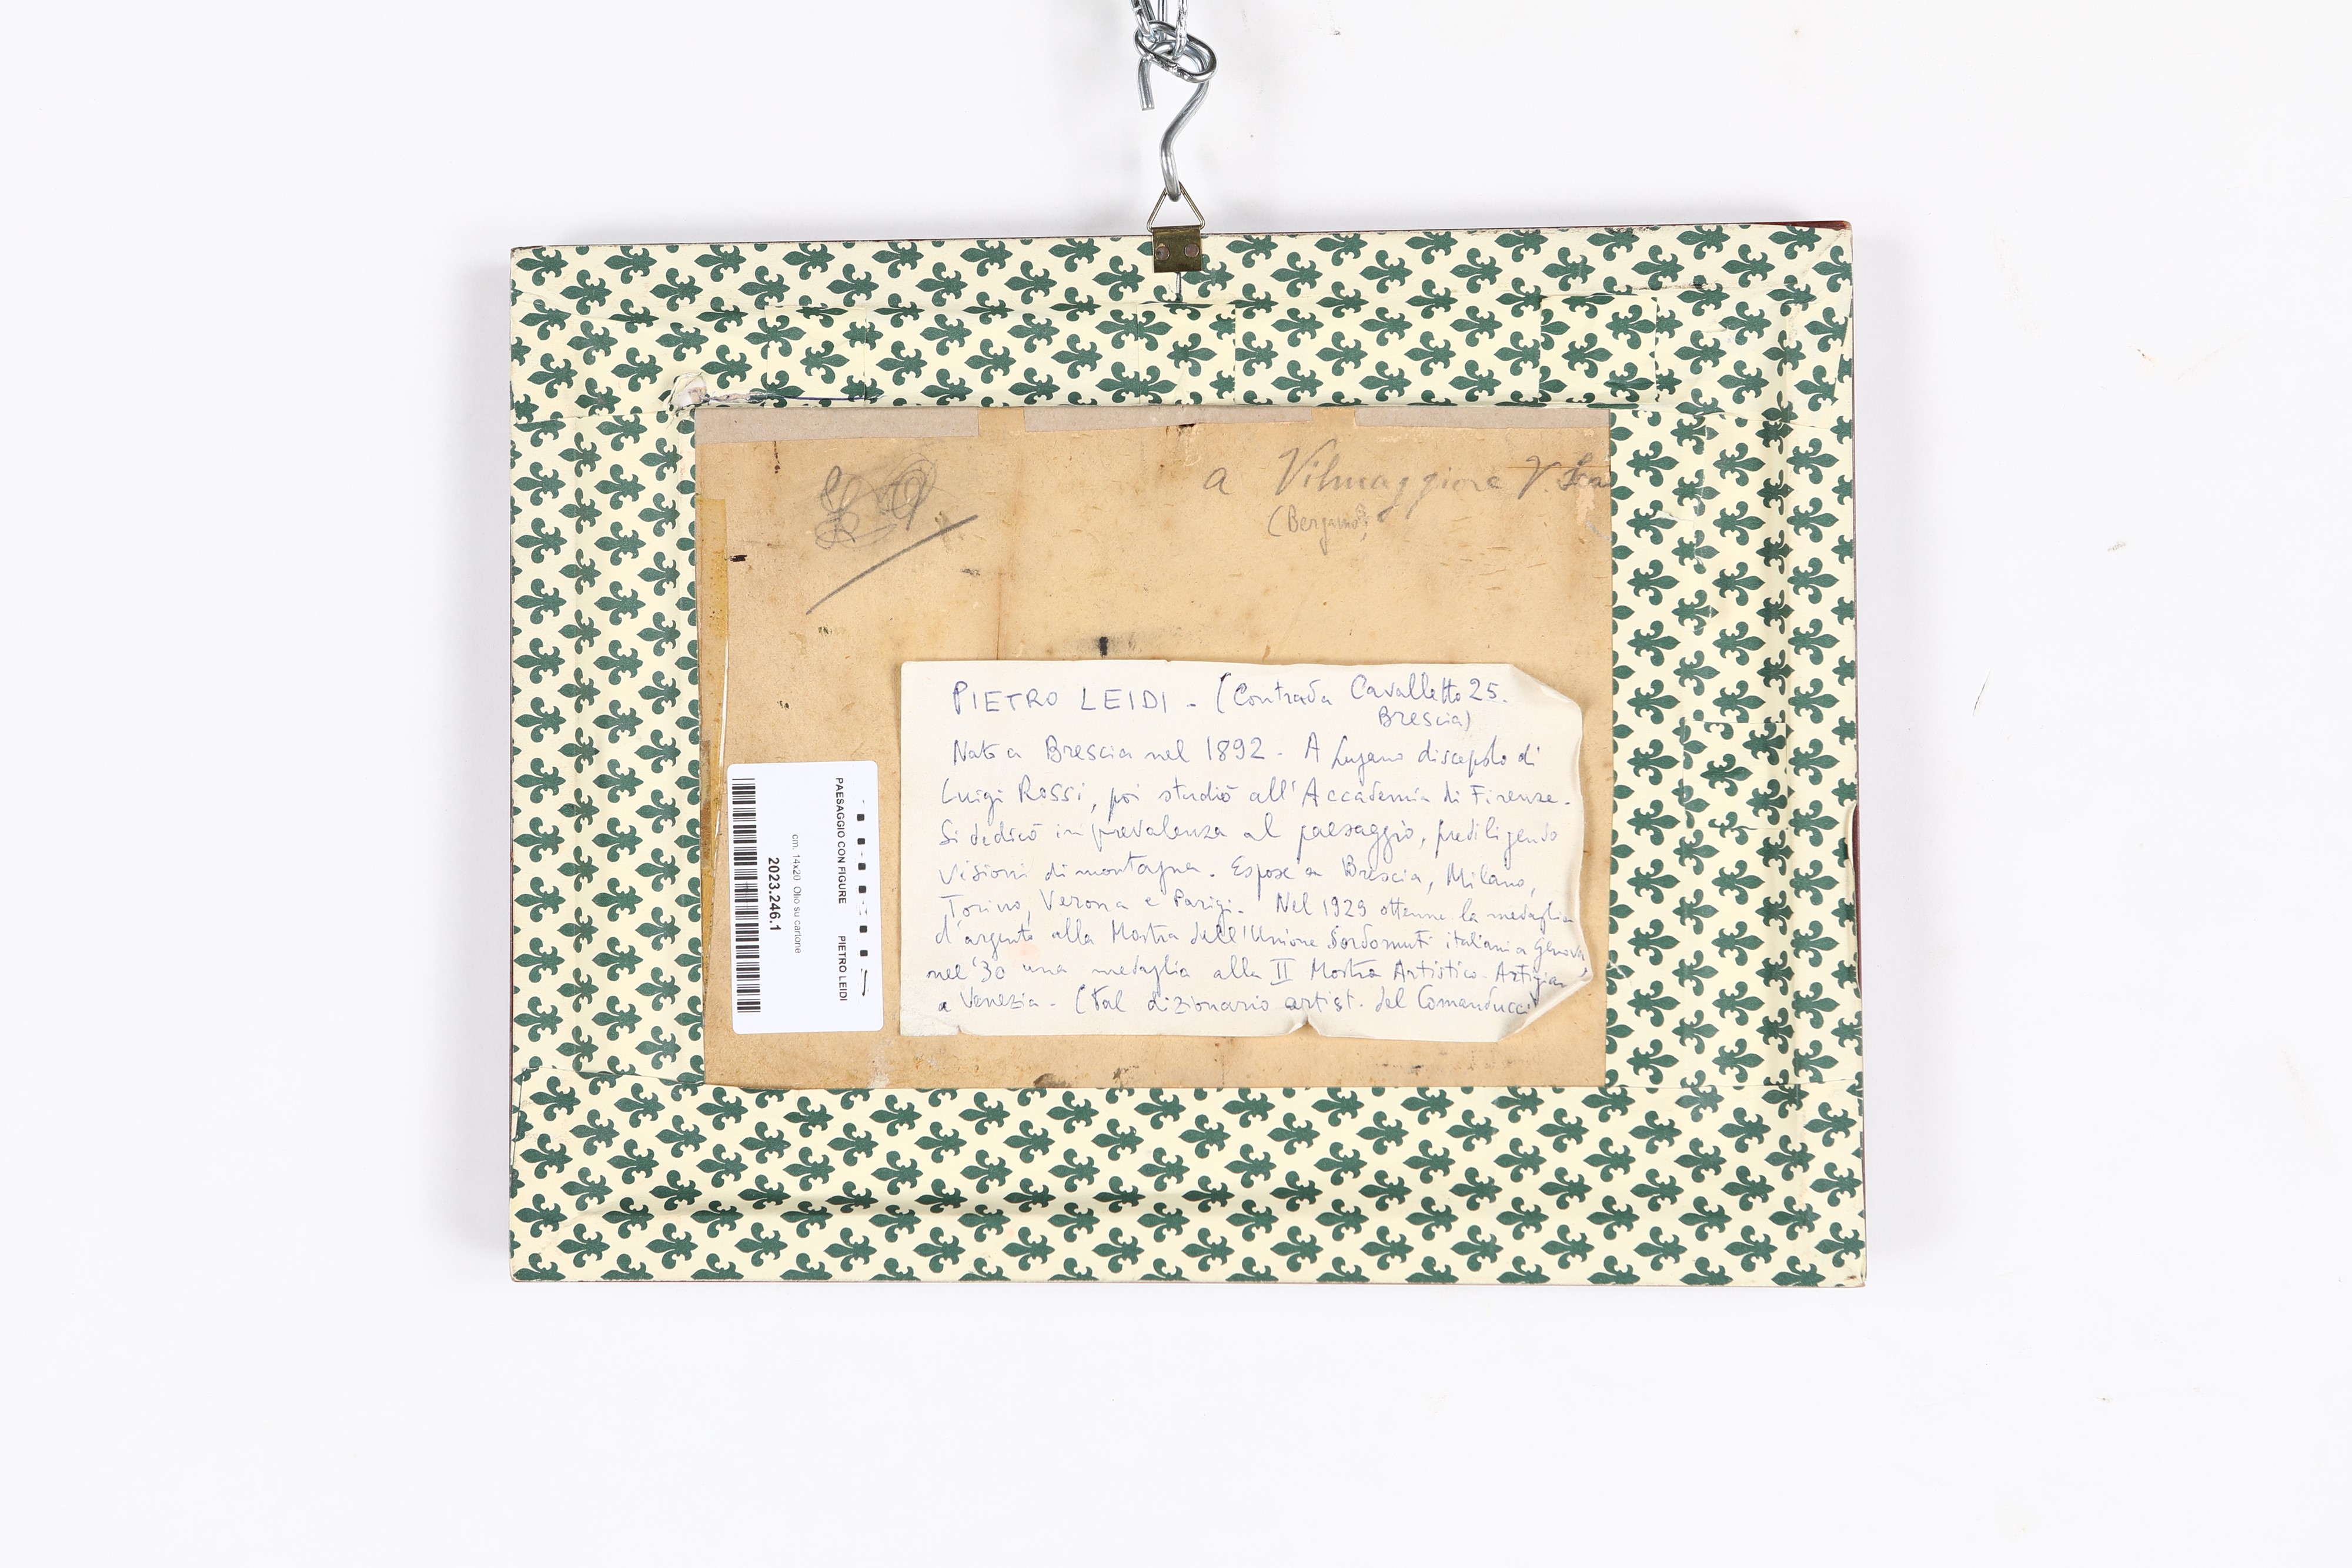 a Vilmaggiore V. Sca
(Bergamo)
PIETRO LEIDI - (Contrada Cavalletto 25.
Brescia)
Nato a Brescia nel 1892 - A Lugano discepolo di
Luigi Rossi, poi studiò all'Accademia di Firenze.
Si dedicò in prevalenza al paesaggio, prediligendo
visioni di montagna. Espose a Brescia, Milano,
Torino, Verona e Parigi. Nel 1929 ottenne la medaglia
d'argento alla Mostra dell'Unione Sordomuti italiani a Genova
nel '30 una medaglia alla II Mostra Artistico-Artigian
a Venezia - (dal dizionario artist. del Comanducci
PAESAGGIO CON FIGURE PIETRO LEIDI
cm. 14x20 Olio su cartone
2023.246.1